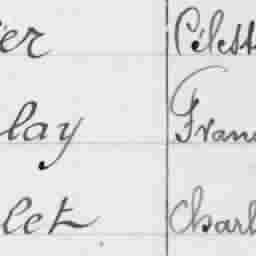 er Cilett
lay Fran
let Charl